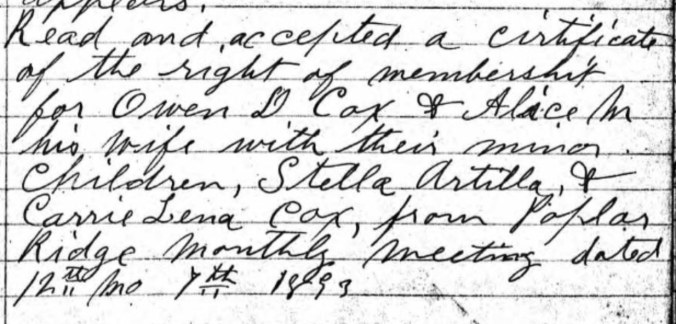 appears.
Read and accepted a cirtificate
of the right of membership
for Owen D Cox & Alice M
his wife with their minor
Children, Stella Artilla, &
Carrie Lena Cox, from Poplar
Ridge Monthly Meeting dated
12th Mo 7th 1893